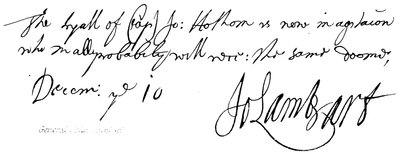 The tryall of Capt Jo: Hothom is now in agitacōn
who in all probability will rece: the same doome,
Decem: ye 10
Jo Lambart